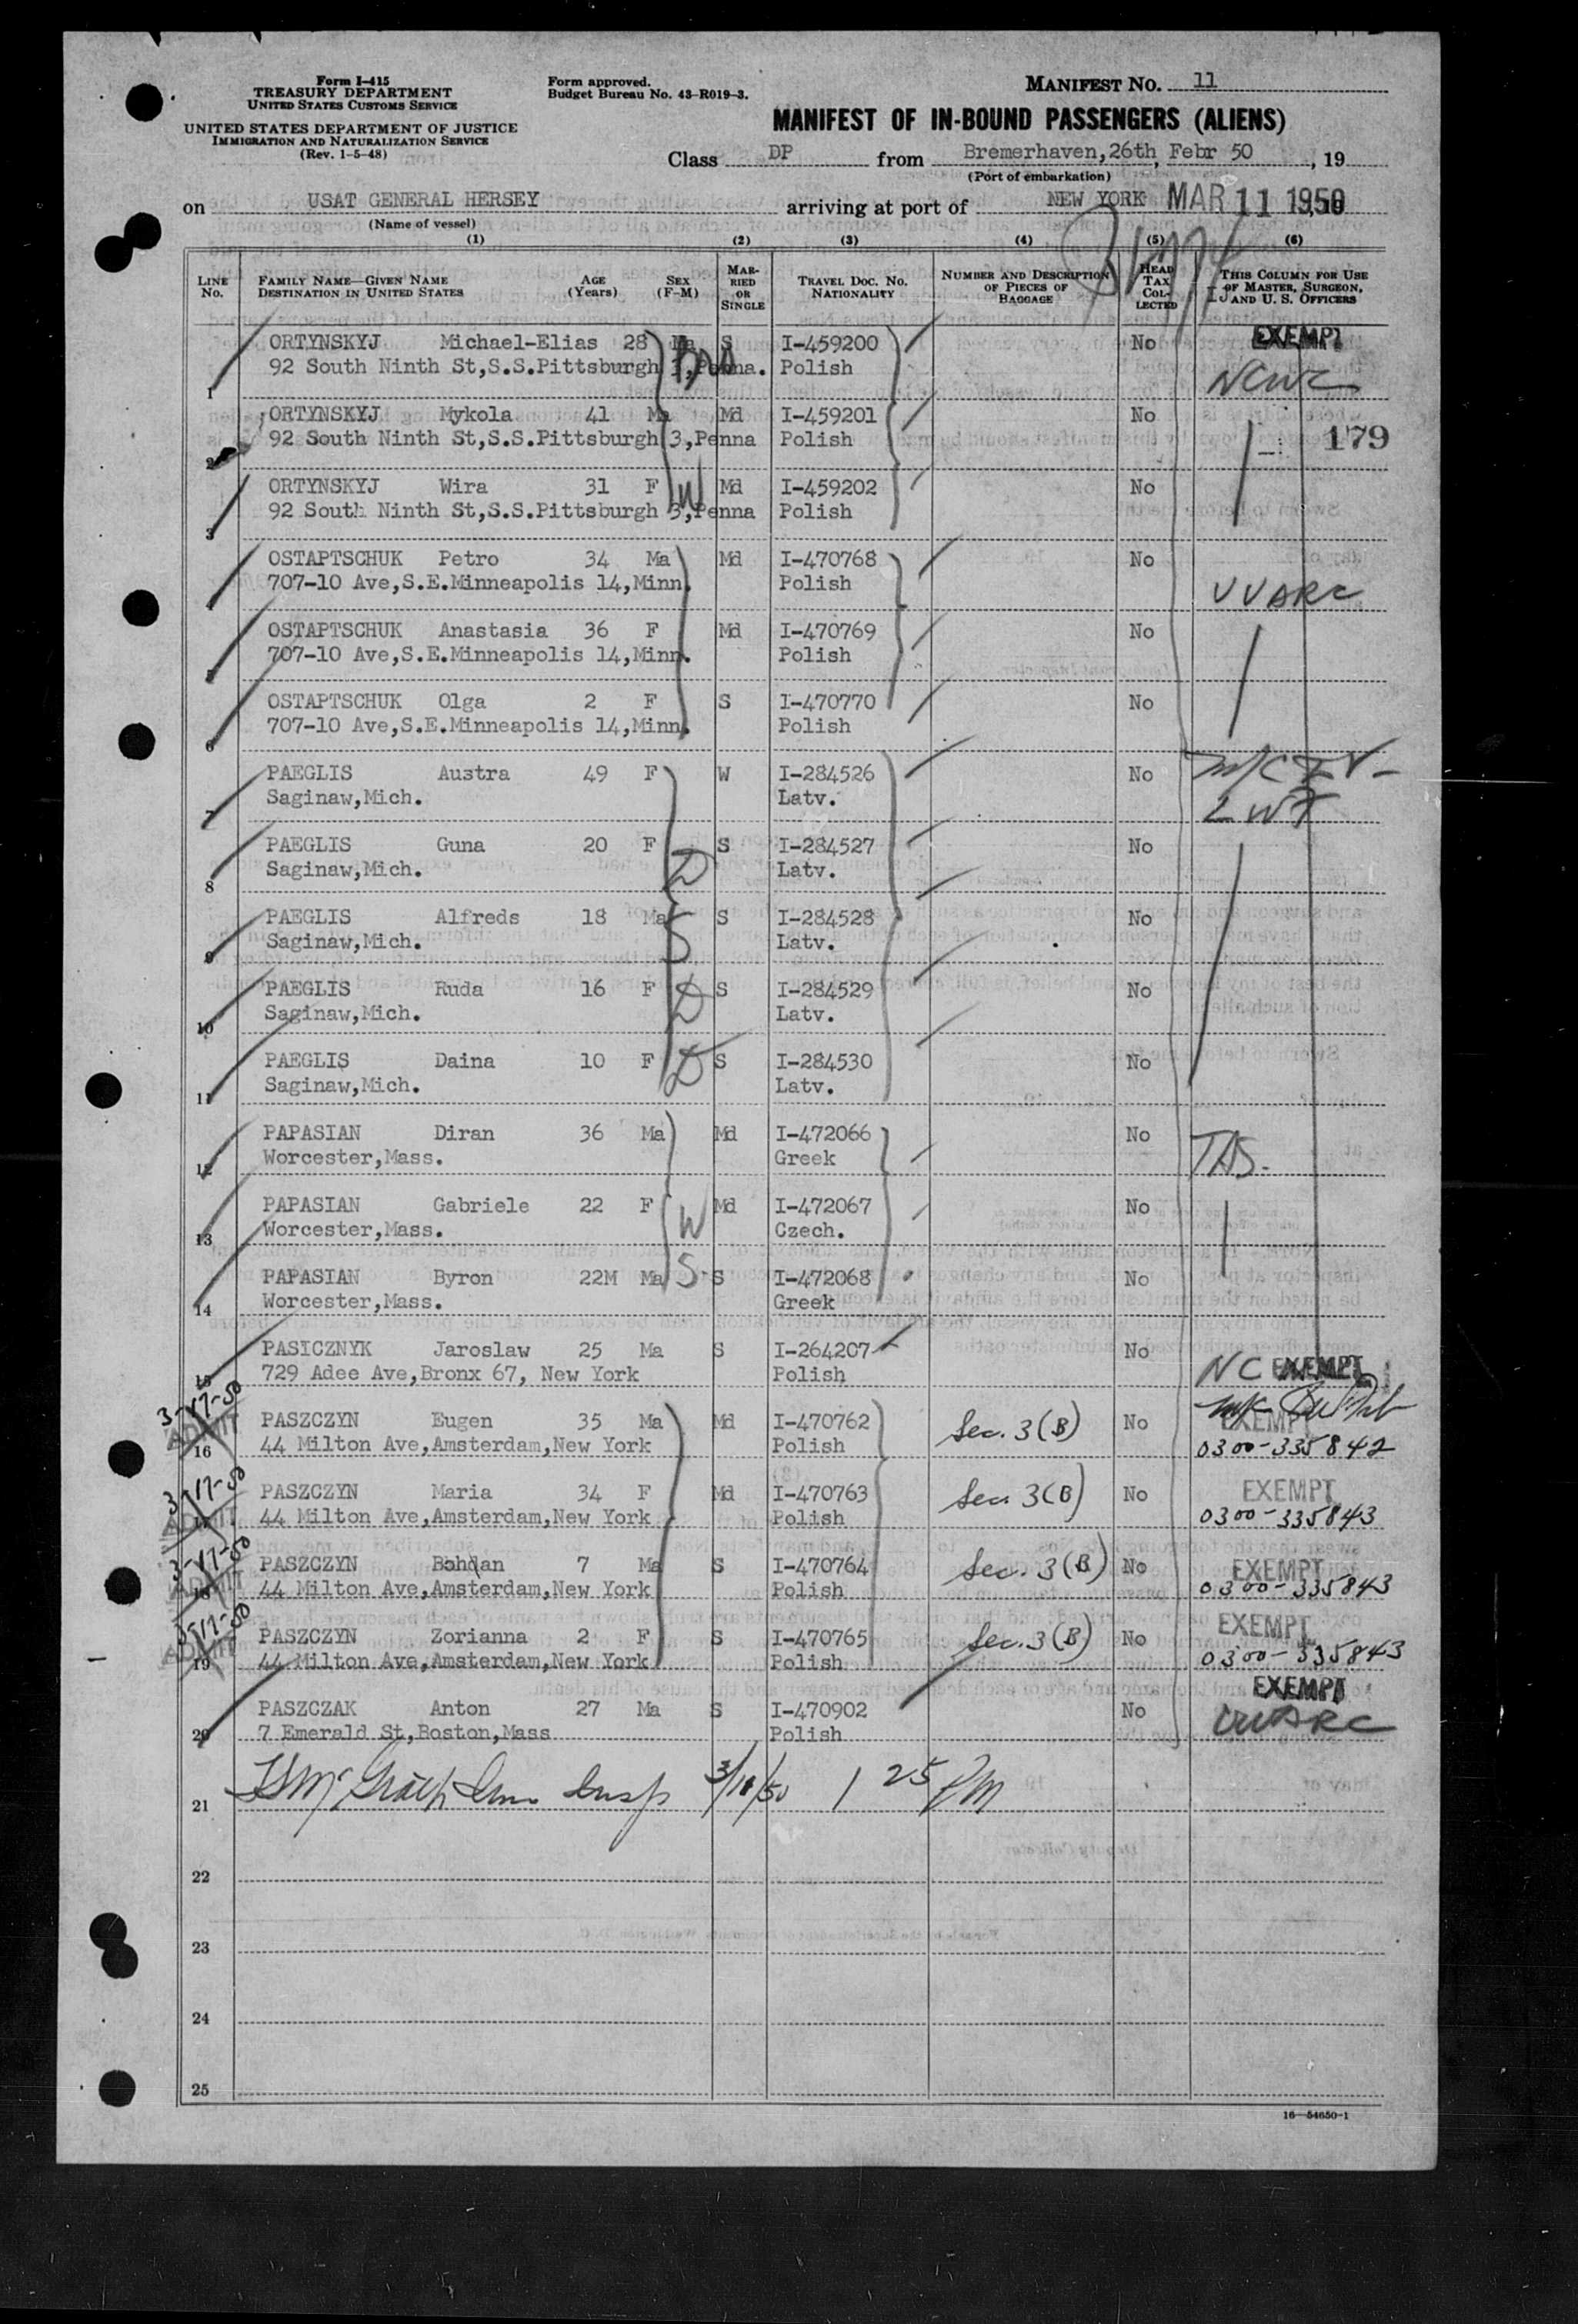 Form I-415
TREASURY DEPARTMENT
UNITED STATES CUSTOMS SERVICE
UNITED STATES DEPARTMENT OF JUSTICE
IMMIGRATION AND NATURALIZATION SERVICE
(Rev. 1-5-48)
Form approved.
Budget Bureau No. 43-R019-3.
MANIFEST NO. 11
MANIFEST OF IN-BOUND PASSENGERS (ALIENS)
Class DP from Bremerhaven, 26th, Febr 50, 19
(Port of embarkation)
on USAT GENERAL HERSEY arriving at port of NEW YORK MAR 11 1950
(Name of vessel)
(1) (2) (3) (4) (5) (6)
LINE No. FAMILY NAME—GIVEN NAME DESTINATION IN UNITED STATES AGE (Years) SEX (F-M) MARRIED OR SINGLE TRAVEL DOC. NO. NATIONALITY NUMBER AND DESCRIPTION OF PIECES OF BAGGAGE HEAD TAX COLLECTED THIS COLUMN FOR USE OF MASTER, SURGEON, AND U. S. OFFICERS
ORTYNSKYJ Michael-Elias 28 Ma S I-459200 No EXEMPT
1 92 South Ninth St,S.S.Pittsburgh 3,Penna. Polish NCWC
ORTYNSKYJ Mykola 41 Ma Md I-459201 No
2 92 South Ninth St,S.S.Pittsburgh 3,Penna Polish 179
ORTYNSKYJ Wira 31 F W Md I-459202 No
3 92 South Ninth St,S.S.Pittsburgh 3,Penna Polish
OSTAPTSCHUK Petro 34 Ma Md I-470768 No
4 707-10 Ave,S.E.Minneapolis 14,Minn. Polish UUARC
OSTAPTSCHUK Anastasia 36 F Md I-470769 No
5 707-10 Ave,S.E.Minneapolis 14,Minn. Polish
OSTAPTSCHUK Olga 2 F S I-470770 No
6 707-10 Ave,S.E.Minneapolis 14,Minn. Polish
PAEGLIS Austra 49 F W I-284526 No
7 Saginaw,Mich. Latv. LWF
PAEGLIS Guna 20 F D S I-284527 No
8 Saginaw,Mich. Latv.
PAEGLIS Alfreds 18 Ma S S I-284528 No
9 Saginaw,Mich. Latv.
PAEGLIS Ruda 16 F D S I-284529 No
10 Saginaw,Mich. Latv.
PAEGLIS Daina 10 F D S I-284530 No
11 Saginaw,Mich. Latv.
PAPASIAN Diran 36 Ma Md I-472066 No
12 Worcester,Mass. Greek
PAPASIAN Gabriele 22 F W Md I-472067 No
13 Worcester,Mass. Czech.
PAPASIAN Byron 22M Ma S S I-472068 No
14 Worcester,Mass. Greek
PASICZNYK Jaroslaw 25 Ma S I-264207 No
15 729 Adee Ave,Bronx 67, New York Polish NC EXEMPT
3-17-50 ADMIT
PASZCZYN Eugen 35 Ma Md I-470762 Sec. 3(B) No EXEMPT
16 44 Milton Ave,Amsterdam,New York Polish 0300-335842
3-17-50 ADMIT
PASZCZYN Maria 34 F Md I-470763 Sec. 3(B) No EXEMPT
17 44 Milton Ave,Amsterdam,New York Polish 0300-335843
3-17-50 ADMIT
PASZCZYN Bohdan 7 Ma S I-470764 Sec. 3(B) No EXEMPT
18 44 Milton Ave,Amsterdam,New York Polish 0300-335843
3-17-50 ADMIT
PASZCZYN Zorianna 2 F S I-470765 Sec. 3(B) No EXEMPT
19 44 Milton Ave,Amsterdam,New York Polish 0300-335843
PASZCZAK Anton 27 Ma S I-470902 No EXEMPT
20 7 Emerald St,Boston,Mass Polish UUARC
21 McGrath Imm Insp 1 25 PM
22
23
24
25
16—54650-1